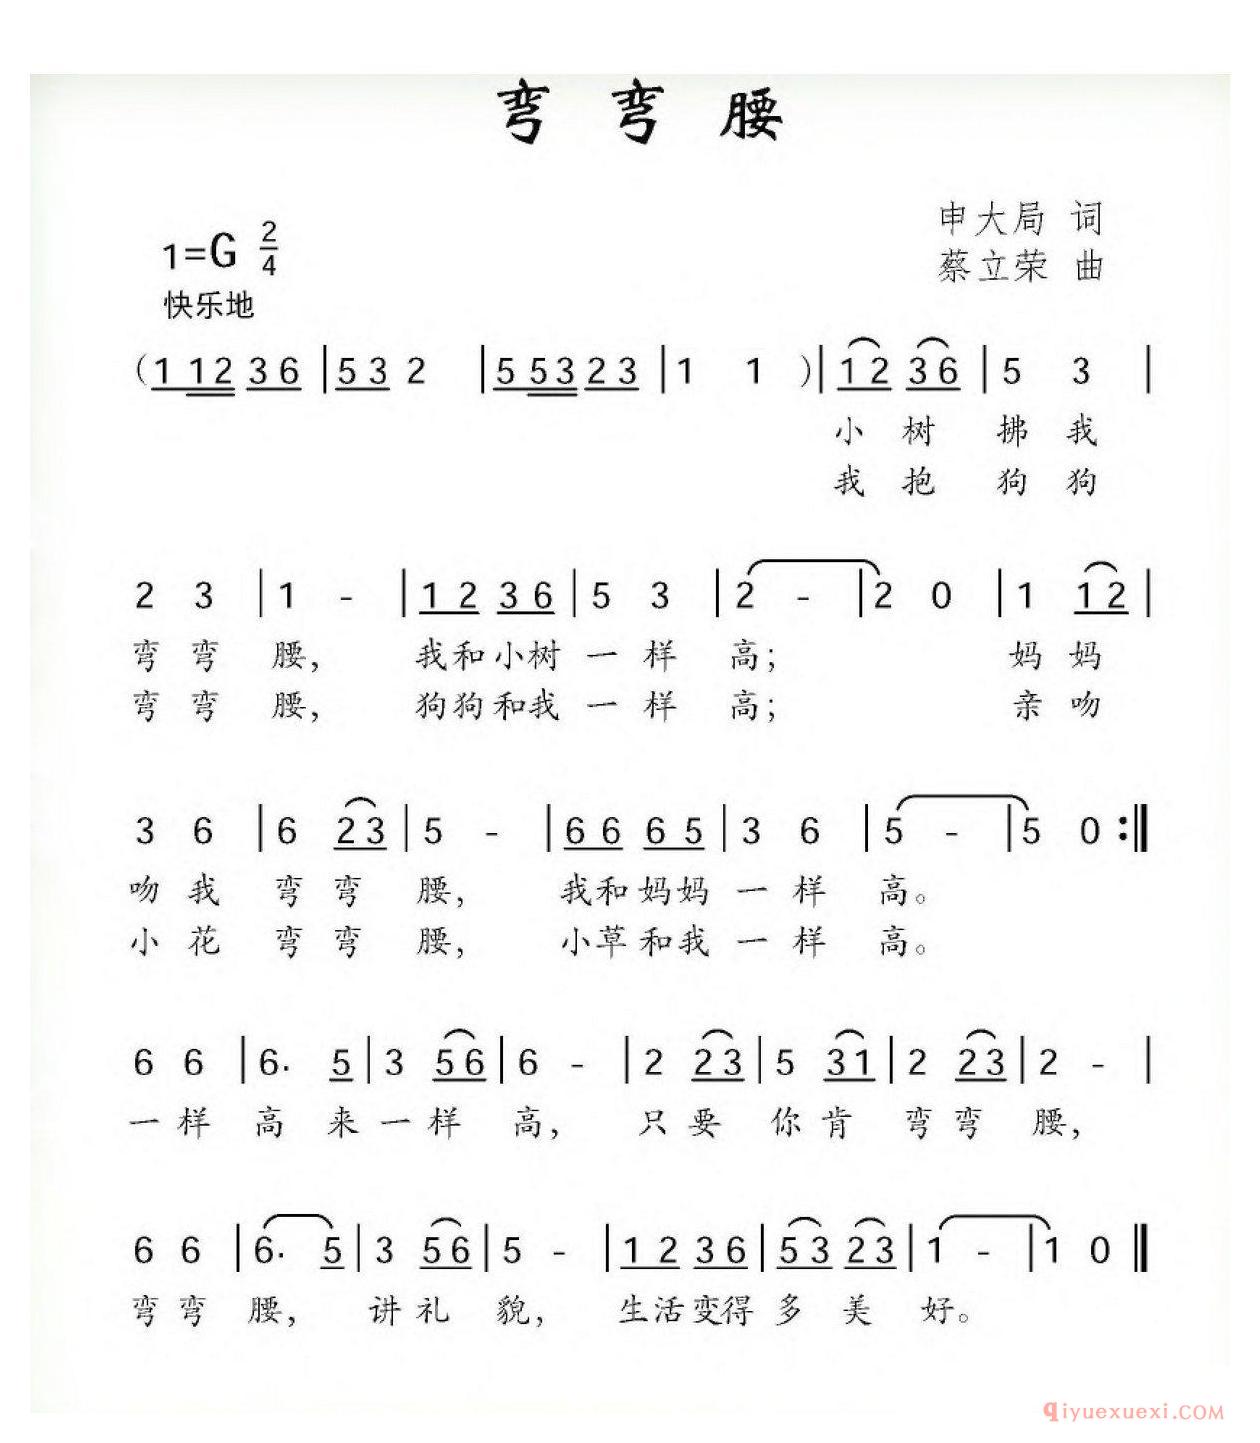 弯弯腰
申大局 词
1=G 2/4
蔡立荣 曲
快乐地
(1 12 36 | 53 2 | 5 53 23 | 1 1 )| 12 36 | 5 3 |
小 树 拂 我
我 抱 狗 狗
2 3 | 1 - | 12 36 | 5 3 | 2 - | 2 0 | 1 12 |
弯 弯 腰, 我和小树 一 样 高; 妈 妈
弯 弯 腰, 狗狗和我 一 样 高; 亲 吻
3 6 | 6 23 | 5 - | 66 65 | 3 6 | 5 - | 5 0 :‖
吻 我 弯 弯 腰, 我和妈妈 一 样 高。
小 花 弯 弯 腰, 小草和我 一 样 高。
6 6 | 6. 5 | 3 56 | 6 - | 2 23 | 5 31 | 2 23 | 2 - |
一 样 高 来 一 样 高, 只 要 你 肯 弯 弯 腰,
6 6 | 6. 5 | 3 56 | 5 - | 12 36 | 53 23 | 1 - | 1 0 ‖
弯 弯 腰, 讲 礼 貌, 生活变得 多 美 好。
qiyuexuexi.COM